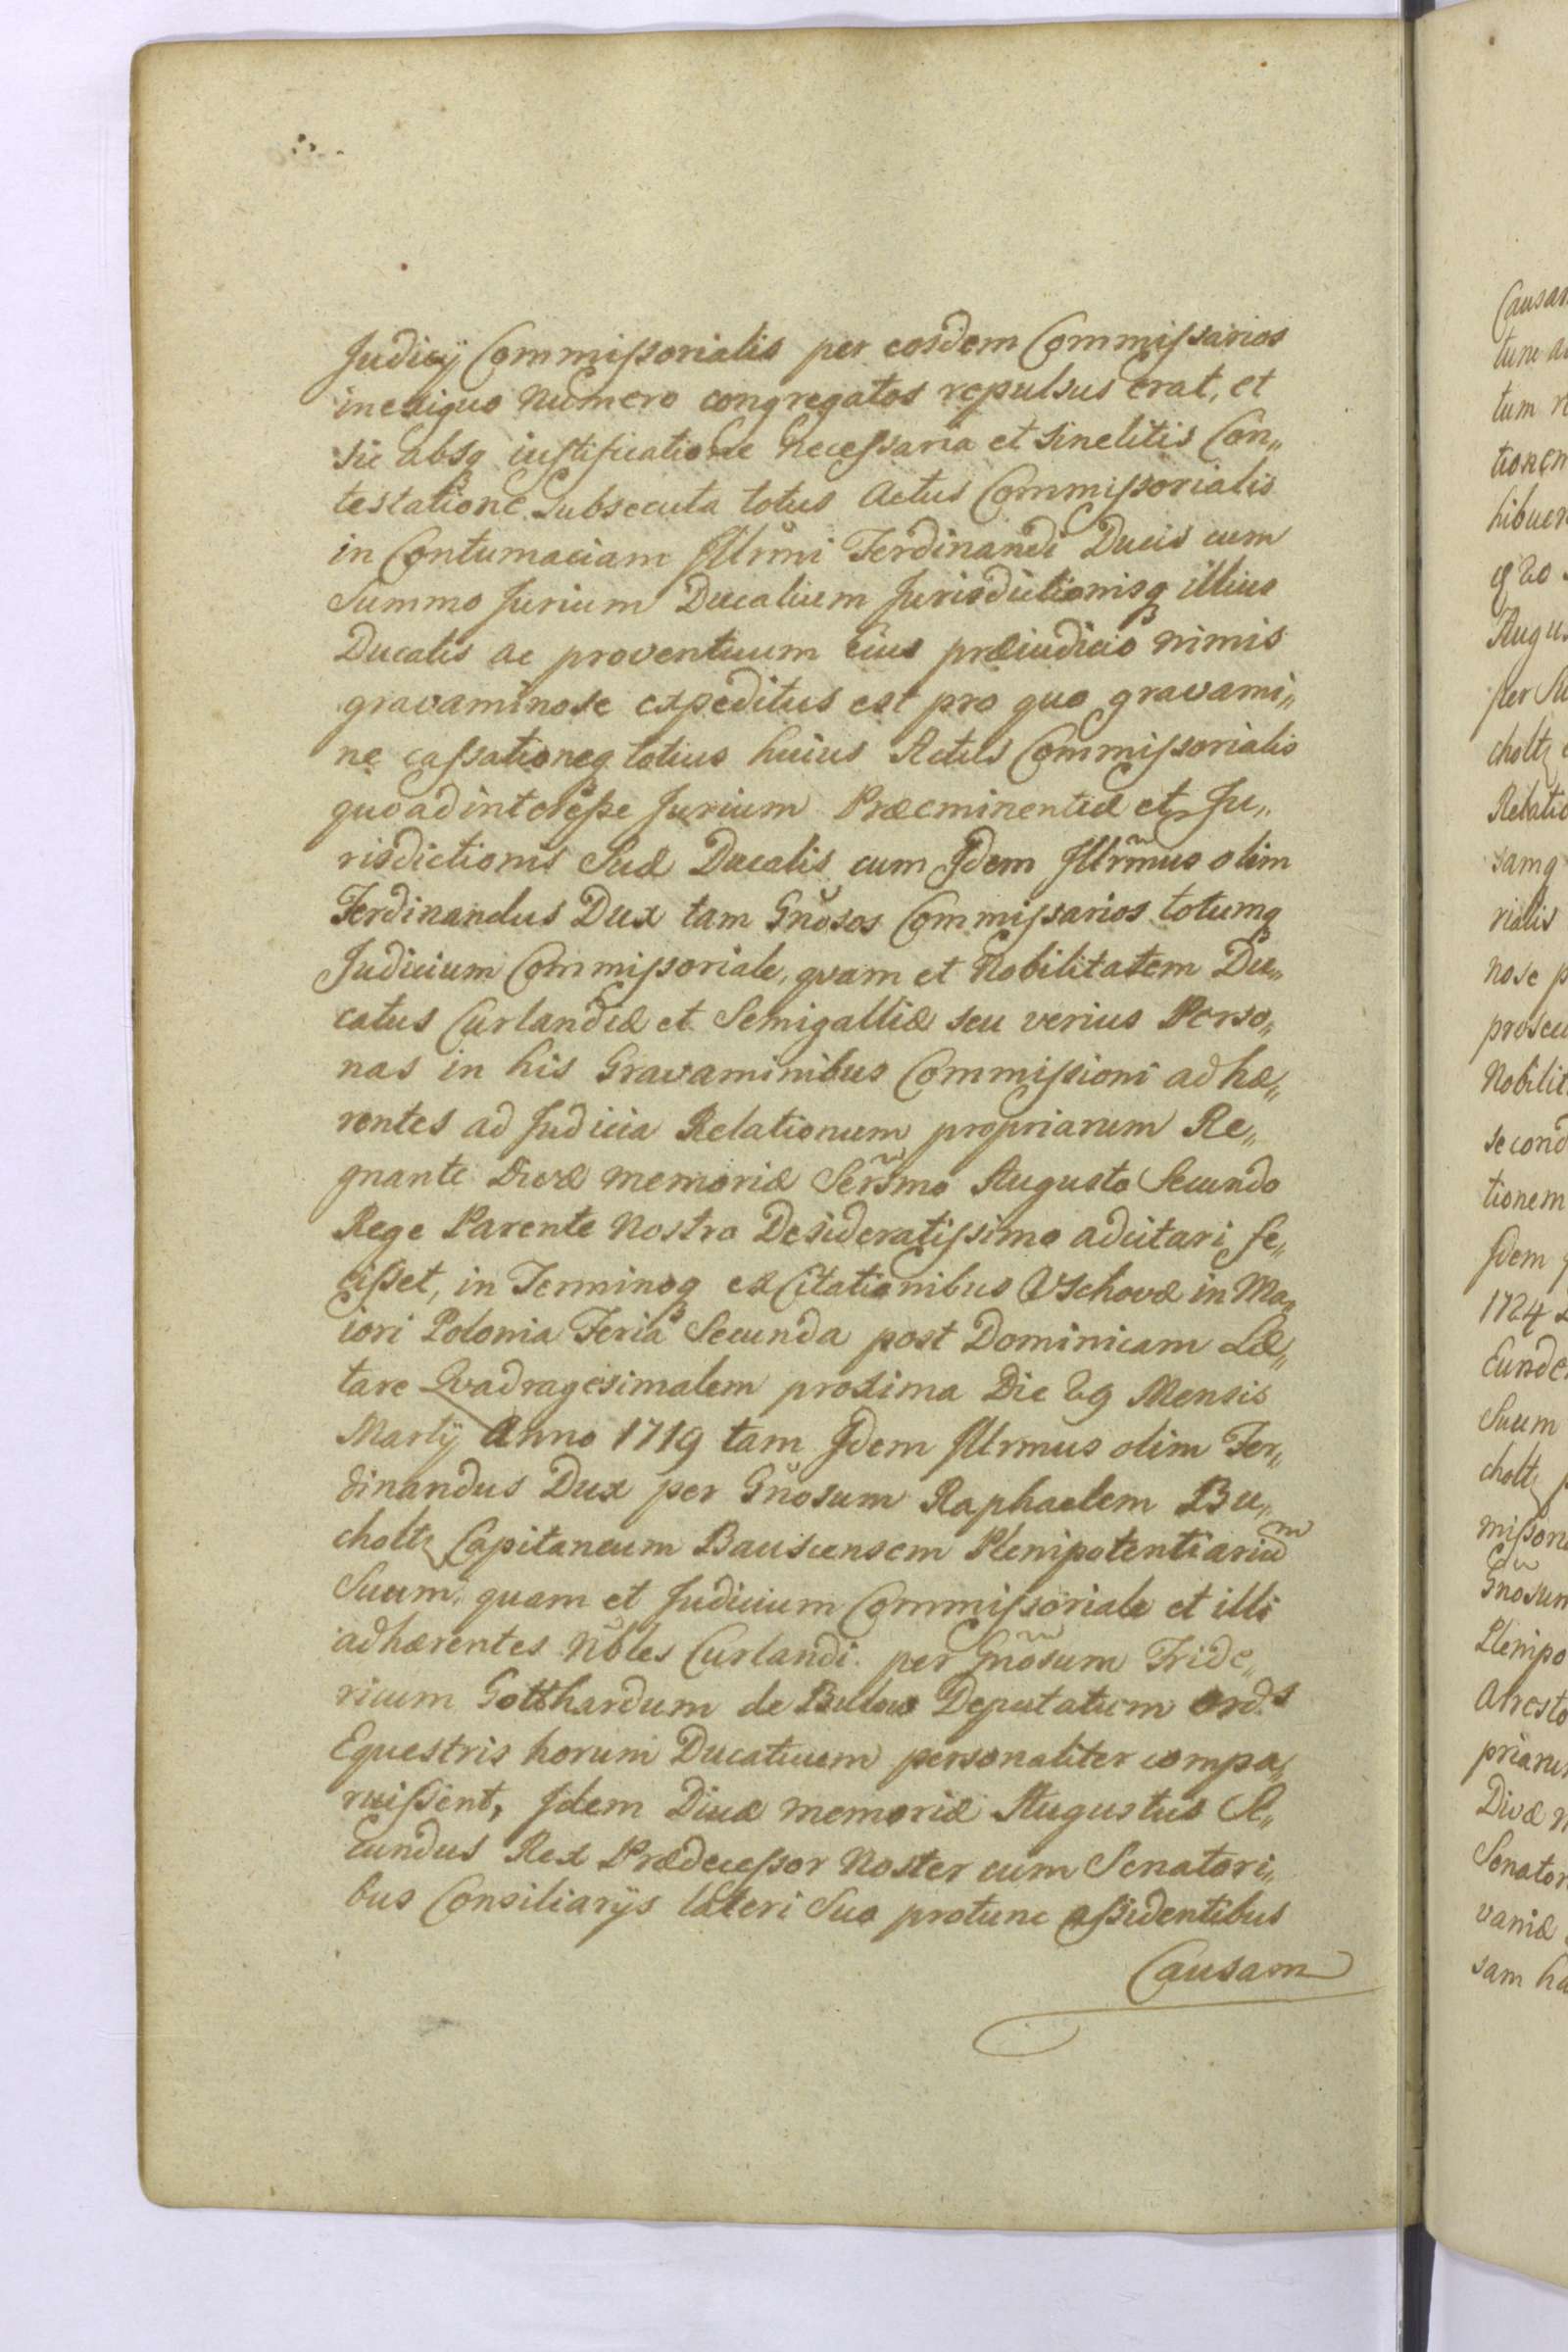 Judicij Commissorialis per eosdem Commissarios
in exiguo Numero congregatos repulsus erat, et
sic absq iustificatione necessaria et sine litis Con„
testatione subsecuta totus Actus Commissorialis
in Contumaciam Illrmi Ferdinandi Ducis cum
Summo Jurium Ducalium Jurisdictionisq illius
Ducalis ac proventuum eius præiudicio nimis
gravaminose expeditus est pro quo gravami„
ne cassationeq totius huius Actus Commissorialis
quo ad interesse Jurium Præeminentiæ et Ju„
risdictionis Suæ Ducalis cum Idem Illrmus olim
Ferdinandus Dux tam Gnosos Commissarios totumq
Judicium Commissoriale, quam et Nobilitatem Du„
catus Curlandiæ et Semigalliæ seu verius Perso„
nas in his Gravaminibus Commissioni adhæ„
rentes ad Judicia Relationum propriarum Re„
gnante Divæ memoriæ Sermo Augusto Secundo
Rege Parente Nostro Desideratissimo adcitari fe„
cisset, in Terminoq ex Citationibus Vschovæ in Ma„
iori Polonia Feria Secunda post Dominicam Læ„
tare Qvadragesimalem proxima Die 29 Mensis
Martij Anno 1719 tam Idem Illrmus olim Fer„
dinandus Dux per Gnosum Raphaelem Bu„
choltz Capitaneum Bauscensem Plenipotentiariũ
Suum, quam et Judicium Commissoriale et illi
adhærentes Nobles Curlandi per Gnosum Fride„
ricum Gotthardum de Bulow Deputatum Ord.s
Equestris horum Ducatuum personaliter compa„
ruissent, Idem Divæ memoriæ Augustus Se„
cundus Rex Prædecessor Noster cum Senatori„
bus Consiliarijs lateri Suo protunc assidentibus
Causam
Causam
tunc
tum
tionem
Augus
per
choltz
Relatio
samq
rialis
nose p
Nobilit
tionem
Idem
1724
Eunde
Suum
choltz p
Gnosum
Plenipo
Divæ
Senator
vaniæ
sam ha